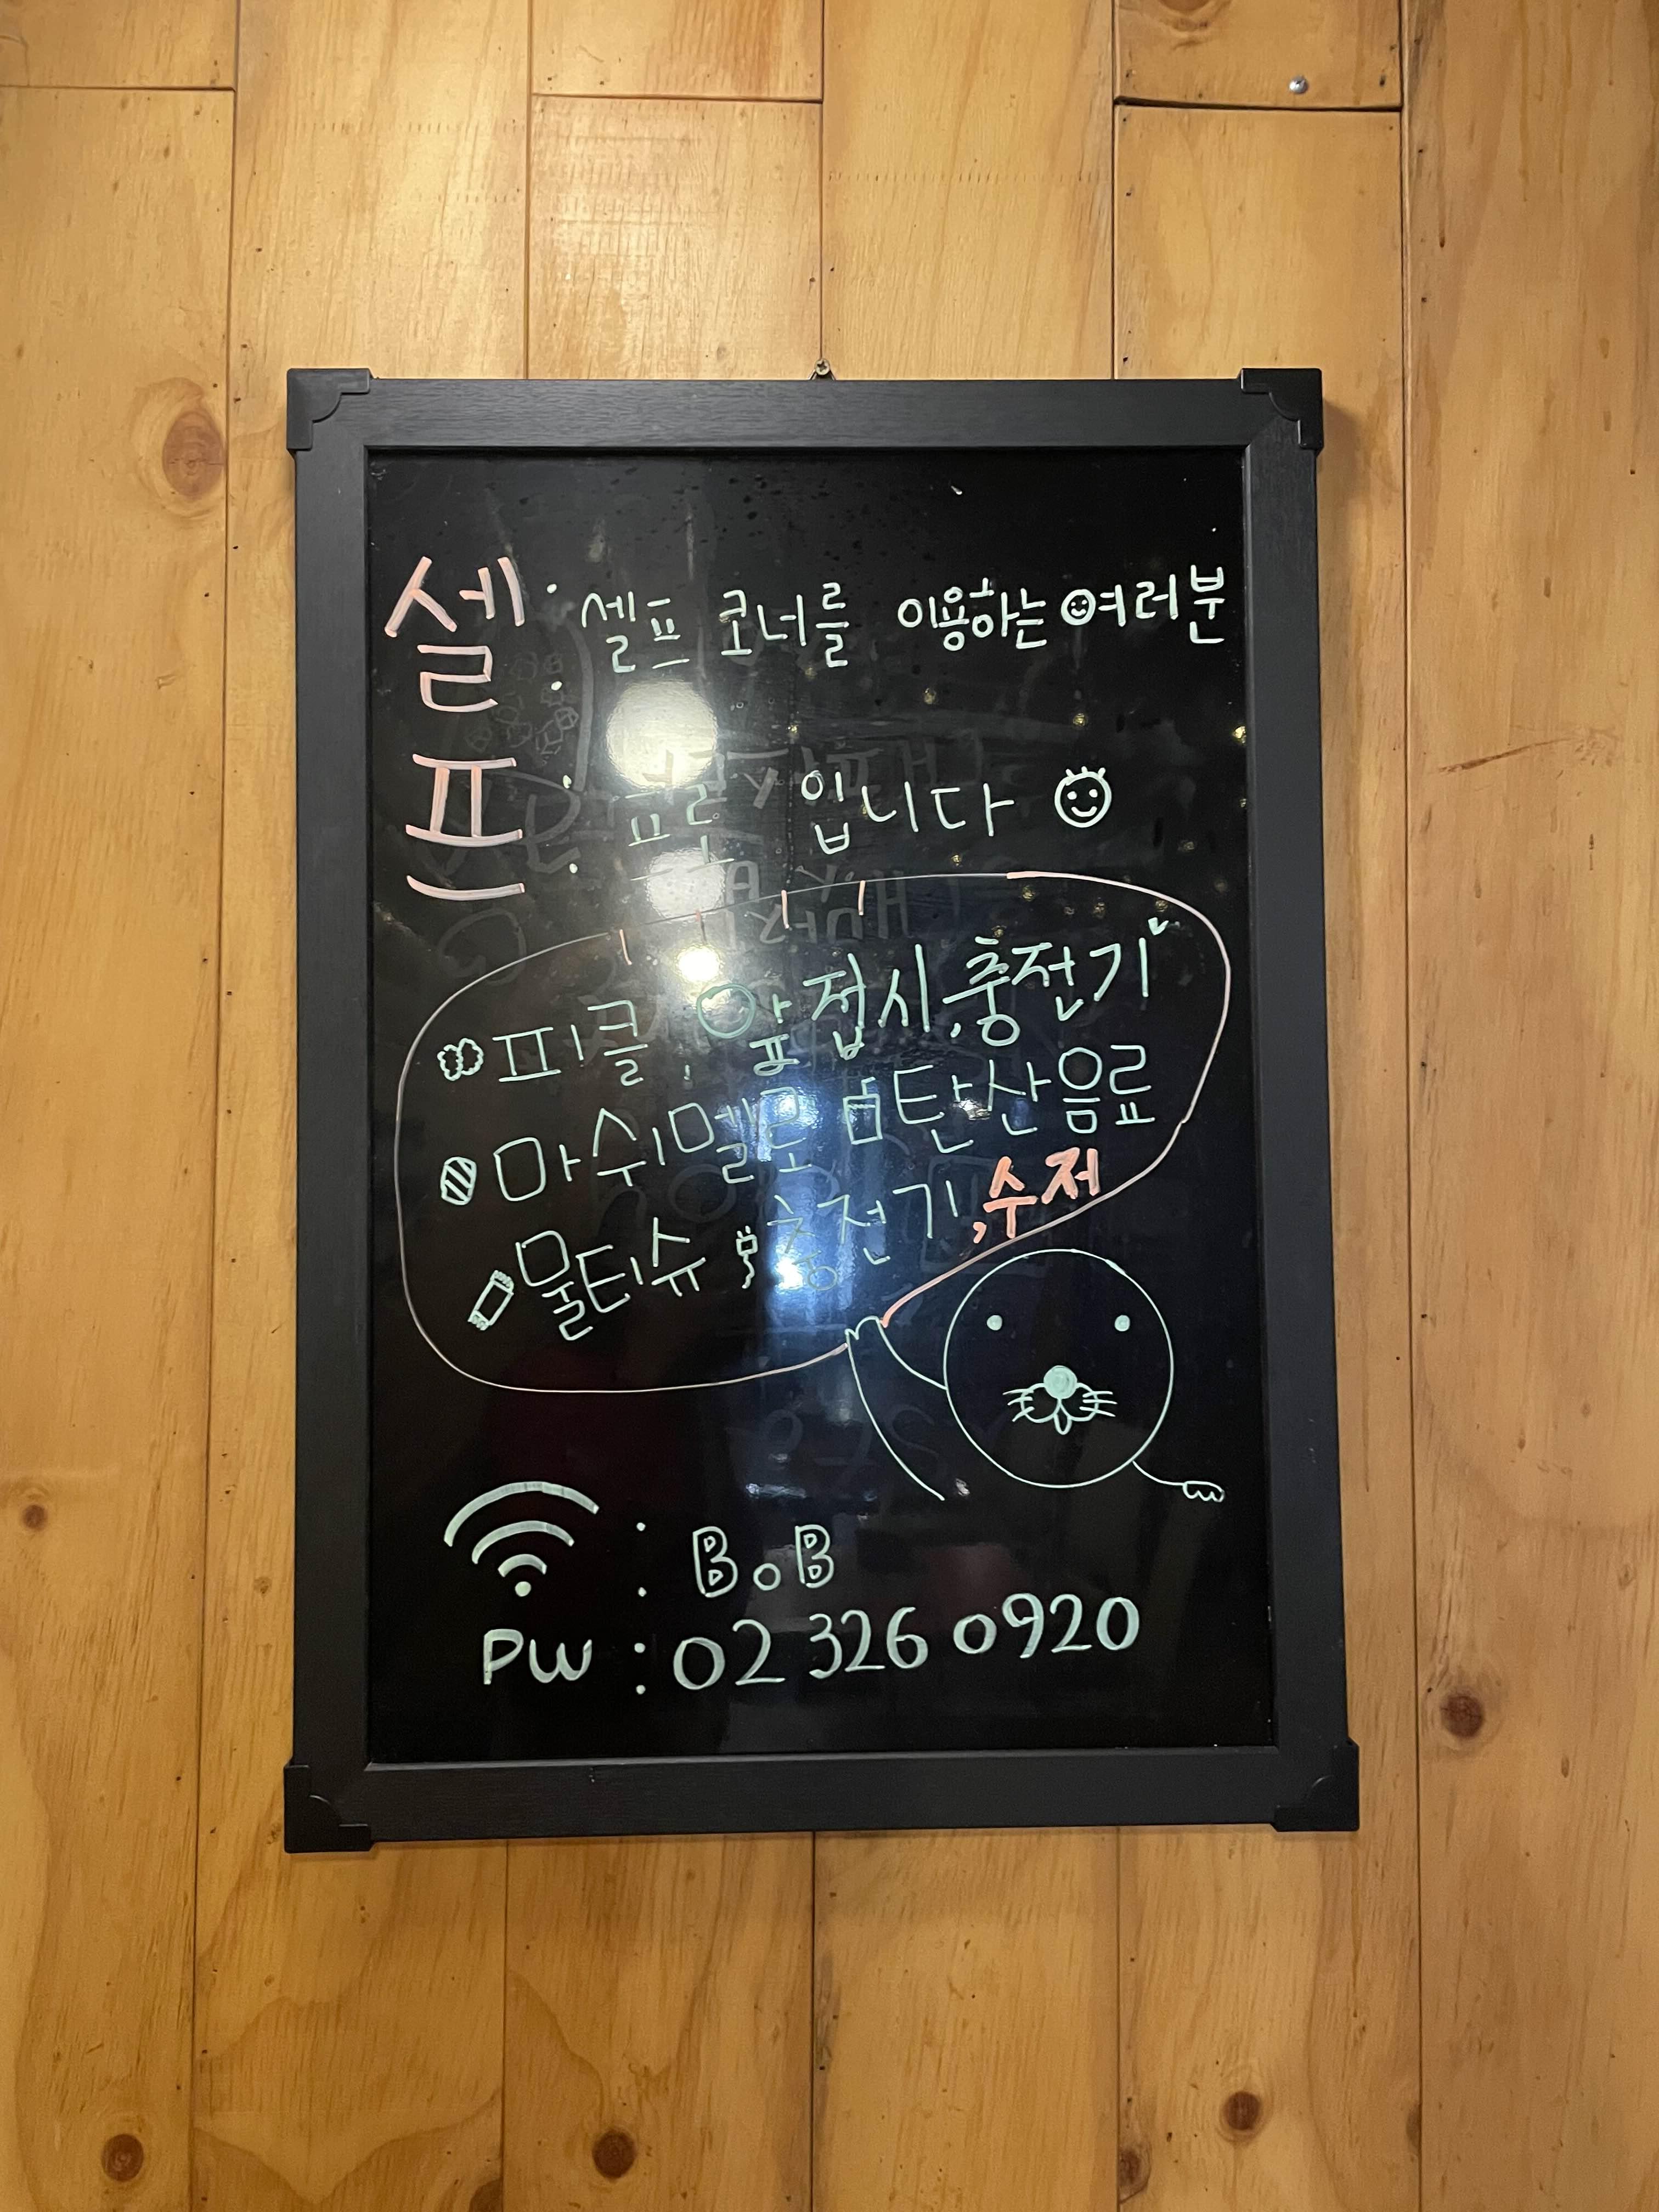 셀 : 셀프 코너를 이용하는 여러분
프 : 프로 입니다
피클, 앞접시, 충전기
마쉬멜로 탄산음료
물티슈 충전기, 수저
: BoB
PW : 02 326 0920